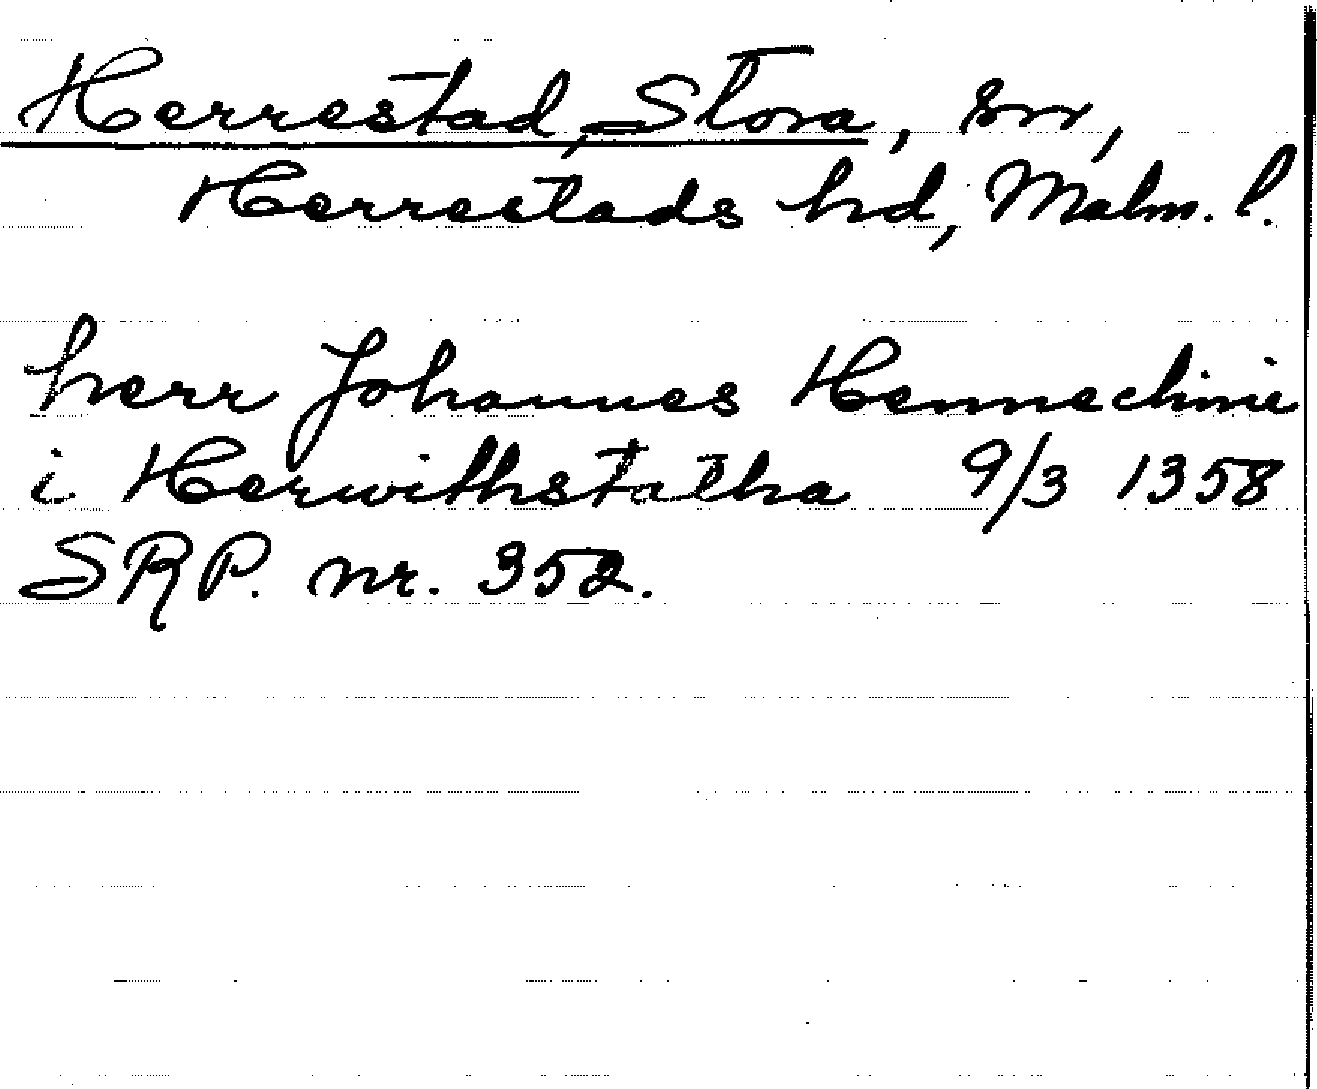 Herrestad, Stora, sn,
Herrestads hd, Malm. l.
herr Johannes Hennechini
i Herwithstatha 9/3 1358
SRP. nr. 352.